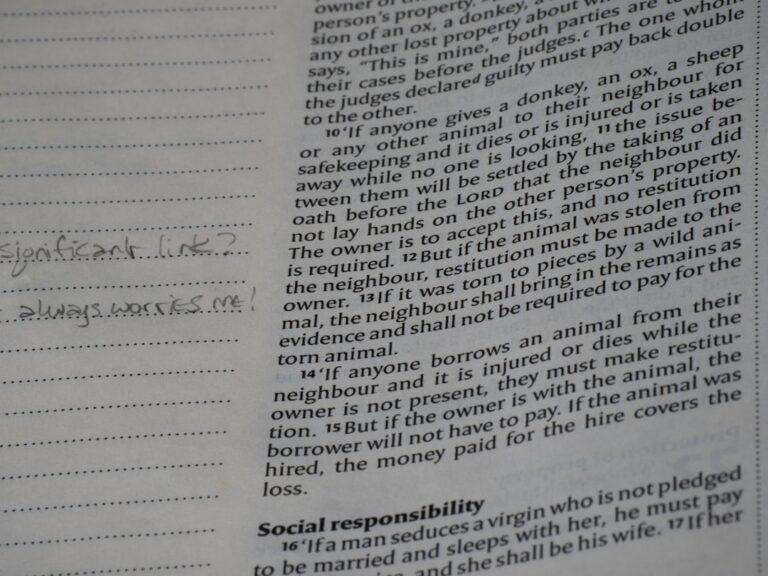 significant link?
always worries me!
owner of the
person's property.
sion of an ox, a donkey, a
any other lost property about wh
says, "This is mine," both parties are to
their cases before the judges.c The one whom
the judges declaredd guilty must pay back double
to the other.
10 'If anyone gives a donkey, an ox, a sheep
or any other animal to their neighbour for
safekeeping and it dies or is injured or is taken
away while no one is looking, 11 the issue be-
tween them will be settled by the taking of an
oath before the LORD that the neighbour did
not lay hands on the other person's property.
The owner is to accept this, and no restitution
is required. 12 But if the animal was stolen from
the neighbour, restitution must be made to the
owner. 13 If it was torn to pieces by a wild ani-
mal, the neighbour shall bring in the remains as
evidence and shall not be required to pay for the
torn animal.
14 'If anyone borrows an animal from their
neighbour and it is injured or dies while the
owner is not present, they must make restitu-
tion. 15 But if the owner is with the animal, the
borrower will not have to pay. If the animal was
hired, the money paid for the hire covers the
loss.
Social responsibility
16 'If a man seduces a virgin who is not pledged
to be married and sleeps with her, he must pay
and she shall be his wife. 17 If her